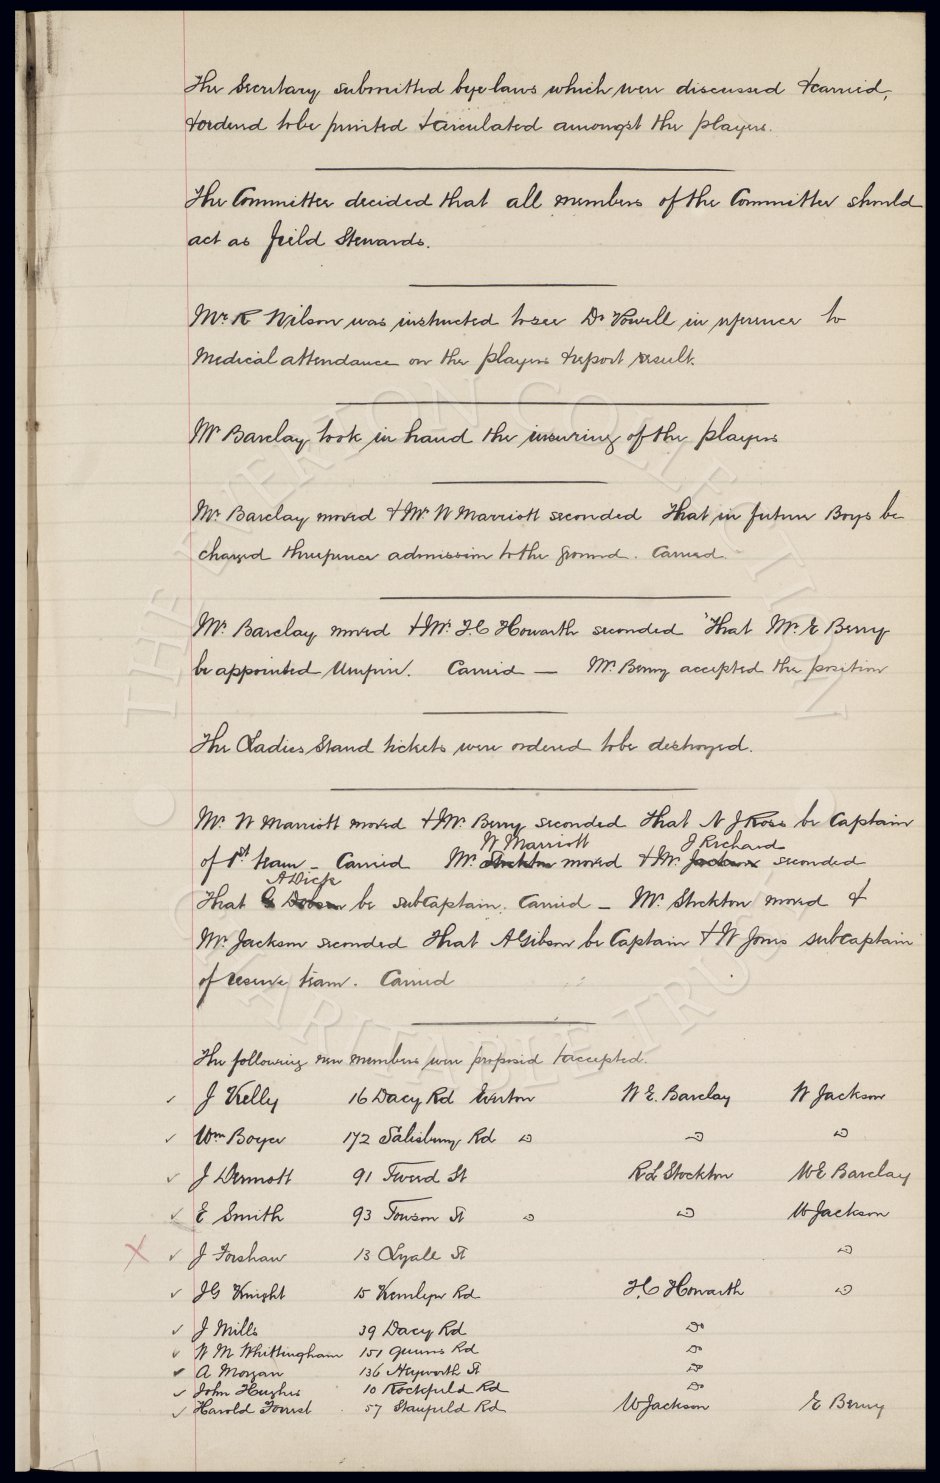 The Secretary submitted bye laws which were discussed & carried,
& ordered to be printed & circulated amongst the players.
The Committee decided that all members of the Committee should
act as Field Stewards.
Mr. R Wilson was instructed to see Dr Powell in reference to
Medical attendance on the players & report result.
Mr Barclay took in hand the insuring of the players
Mr. Barclay moved & Mr W Marriott seconded That in future Boys be
charged threepence admission to the ground. Carried.
Mr. Barclay moved & Mr. H.C Howarth seconded That Mr. E Berry
be appointed Umpire. Carried — Mr. Berry accepted the position
The Ladies Stand tickets were ordered to be destroyed.
Mr. W Marriott moved & Mr. Berry seconded That N J Ross be Captain
W Marriott J Richards
of 1st team – Carried Mr. Stockton moved & Mr. Jackson seconded
A Dick
That G Dobson be subCaptain. Carried – Mr. Stockton moved &
Mr. Jackson seconded That A Gibson be Captain & W Jones subcaptain
of reserve team. Carried
The following new members were proposed & accepted.
J Kelly 16 Dacy Rd Everton W E. Barclay W Jackson
Wm Boyer 172 Salisbury Rd Do Do Do
J Dermott 91 St R L Stockton W E Barclay
E Smith 93 Towson St Do Do W Jackson
X J Forshaw 13 Lyall St Do
J G Knight 15 Kemlyn Rd H.C Howarth Do
J Mills 39 Dacy Rd Do
W M Whittingham 151 Queens Rd Do
A Morgan 136 Heyworth St Do
John Hughes 10 Rockfield Rd Do
Harold Forrest 57 Stanfield Rd W Jackson E Berry
THE EVERTON COLLECTION
CHARITABLE TRUST